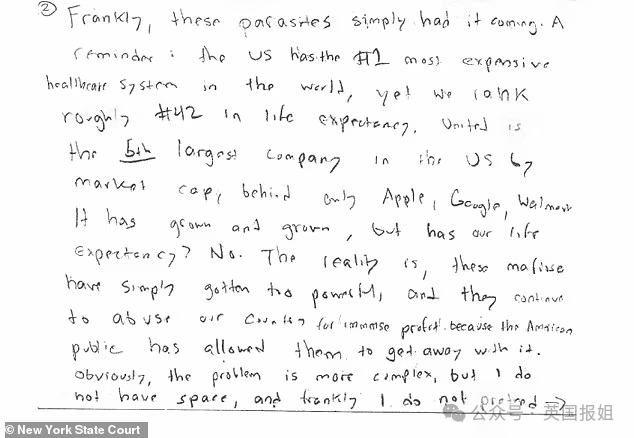 ② Frankly, these parasites simply had it coming. A
reminder: the US has the #1 most expensive
healthcare system in the world, yet we rank
roughly #42 in life expectancy. United is
the 5th largest company in the US by
market cap, behind only Apple, Google, Walmart
It has grown and grown, but has our life
expectancy? No. The reality is, these mafiso
have simply gotten too powerful, and they continue
to abuse our country for immense profit because the American
public has allowed them to get away with it.
Obviously, the problem is more complex, but I do
not have space, and frankly I do not pretend →
公众号·英国报姐
© New York State Court